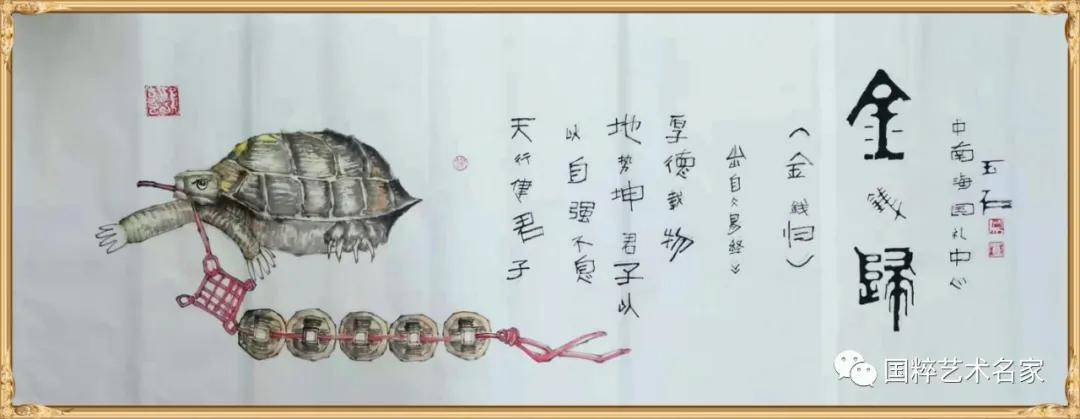 天行健君子
以自强不息
地势坤君子以
厚德载物
出自《易经》
（金钱归）
金钱歸
中南海国礼中心
国粹艺术名家